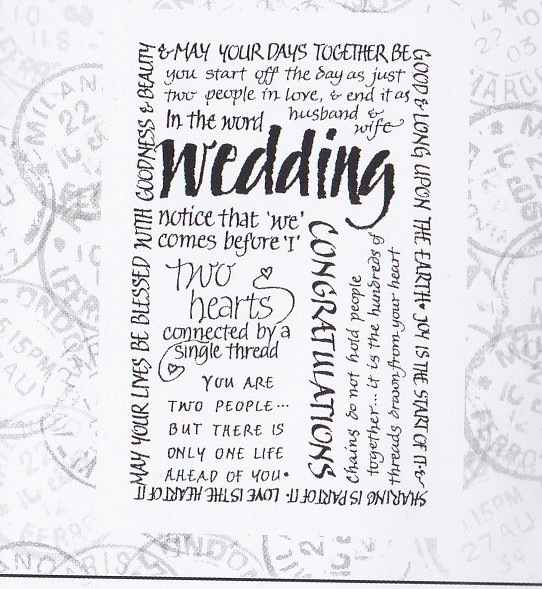 MAY YOUR LIVES BE BLESSED WITH GOODNESS & BEAUTY
& MAY YOUR DAYS TOGETHER BE
GOOD & LONG UPON THE EARTH• JOY IS THE START OF IT•&
SHARING IS PART OF IT• LOVE IS THE HEART OF IT
you start off the day as just
two people in love, & end it as
husband &
wife
In the word
wedding
notice that 'we'
comes before 'I'
two
hearts
connected by a
single thread
YOU ARE
TWO PEOPLE...
BUT THERE IS
ONLY ONE LIFE
AHEAD OF YOU•
CONGRATULATIONS
Chains do not hold people
together...it is the hundreds of
threads drawn from your heart
MILAN